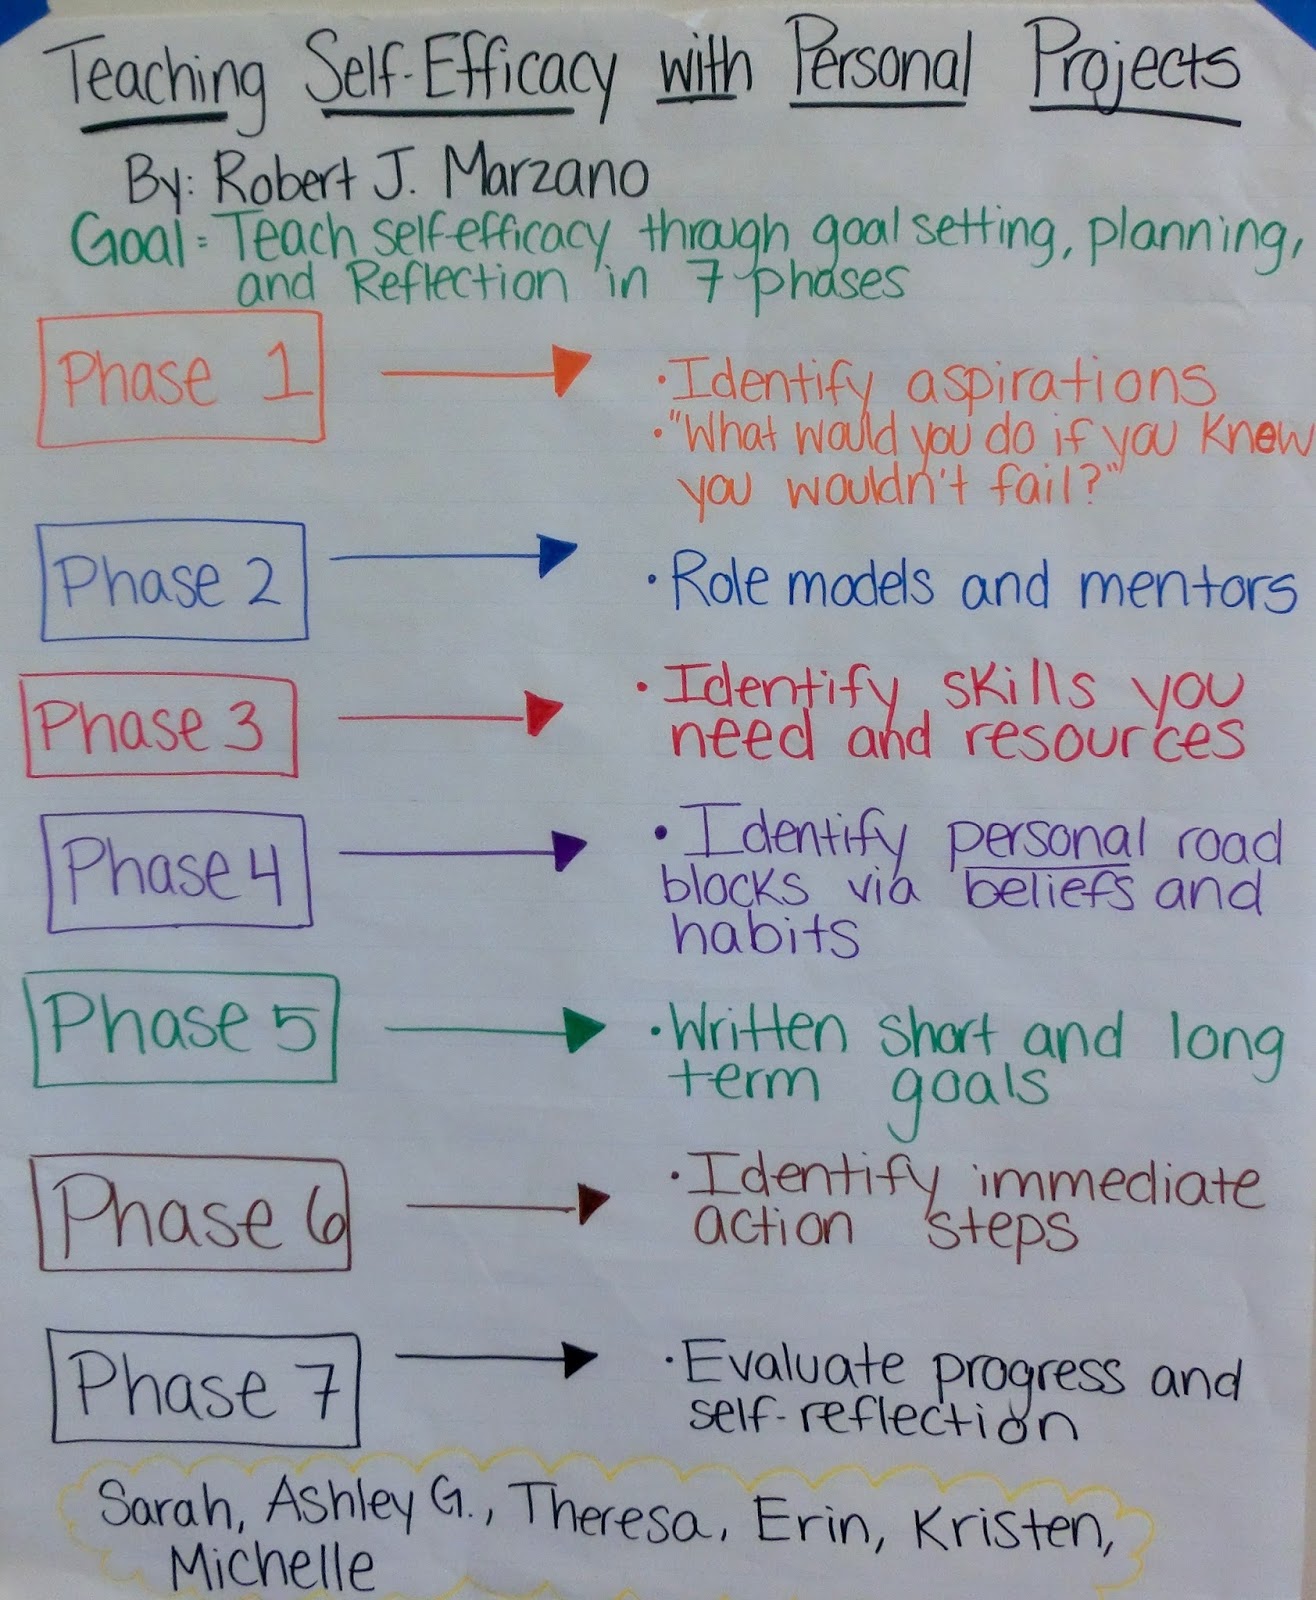 Teaching Self-Efficacy with Personal Projects
By: Robert J. Marzano
Goal = Teach self-efficacy through goal setting, planning,
and Reflection in 7 phases
Phase 1
• Identify aspirations
• "What would you do if you knew
you wouldn't fail?"
Phase 2
• Role models and mentors
Phase 3
• Identify skills you
need and resources
Phase 4
• Identify personal road
blocks via beliefs and
habits
Phase 5
• Written short and long
term goals
Phase 6
• Identify immediate
action steps
Phase 7
• Evaluate progress and
self-reflection
Sarah, Ashley G., Theresa, Erin, Kristen,
Michelle